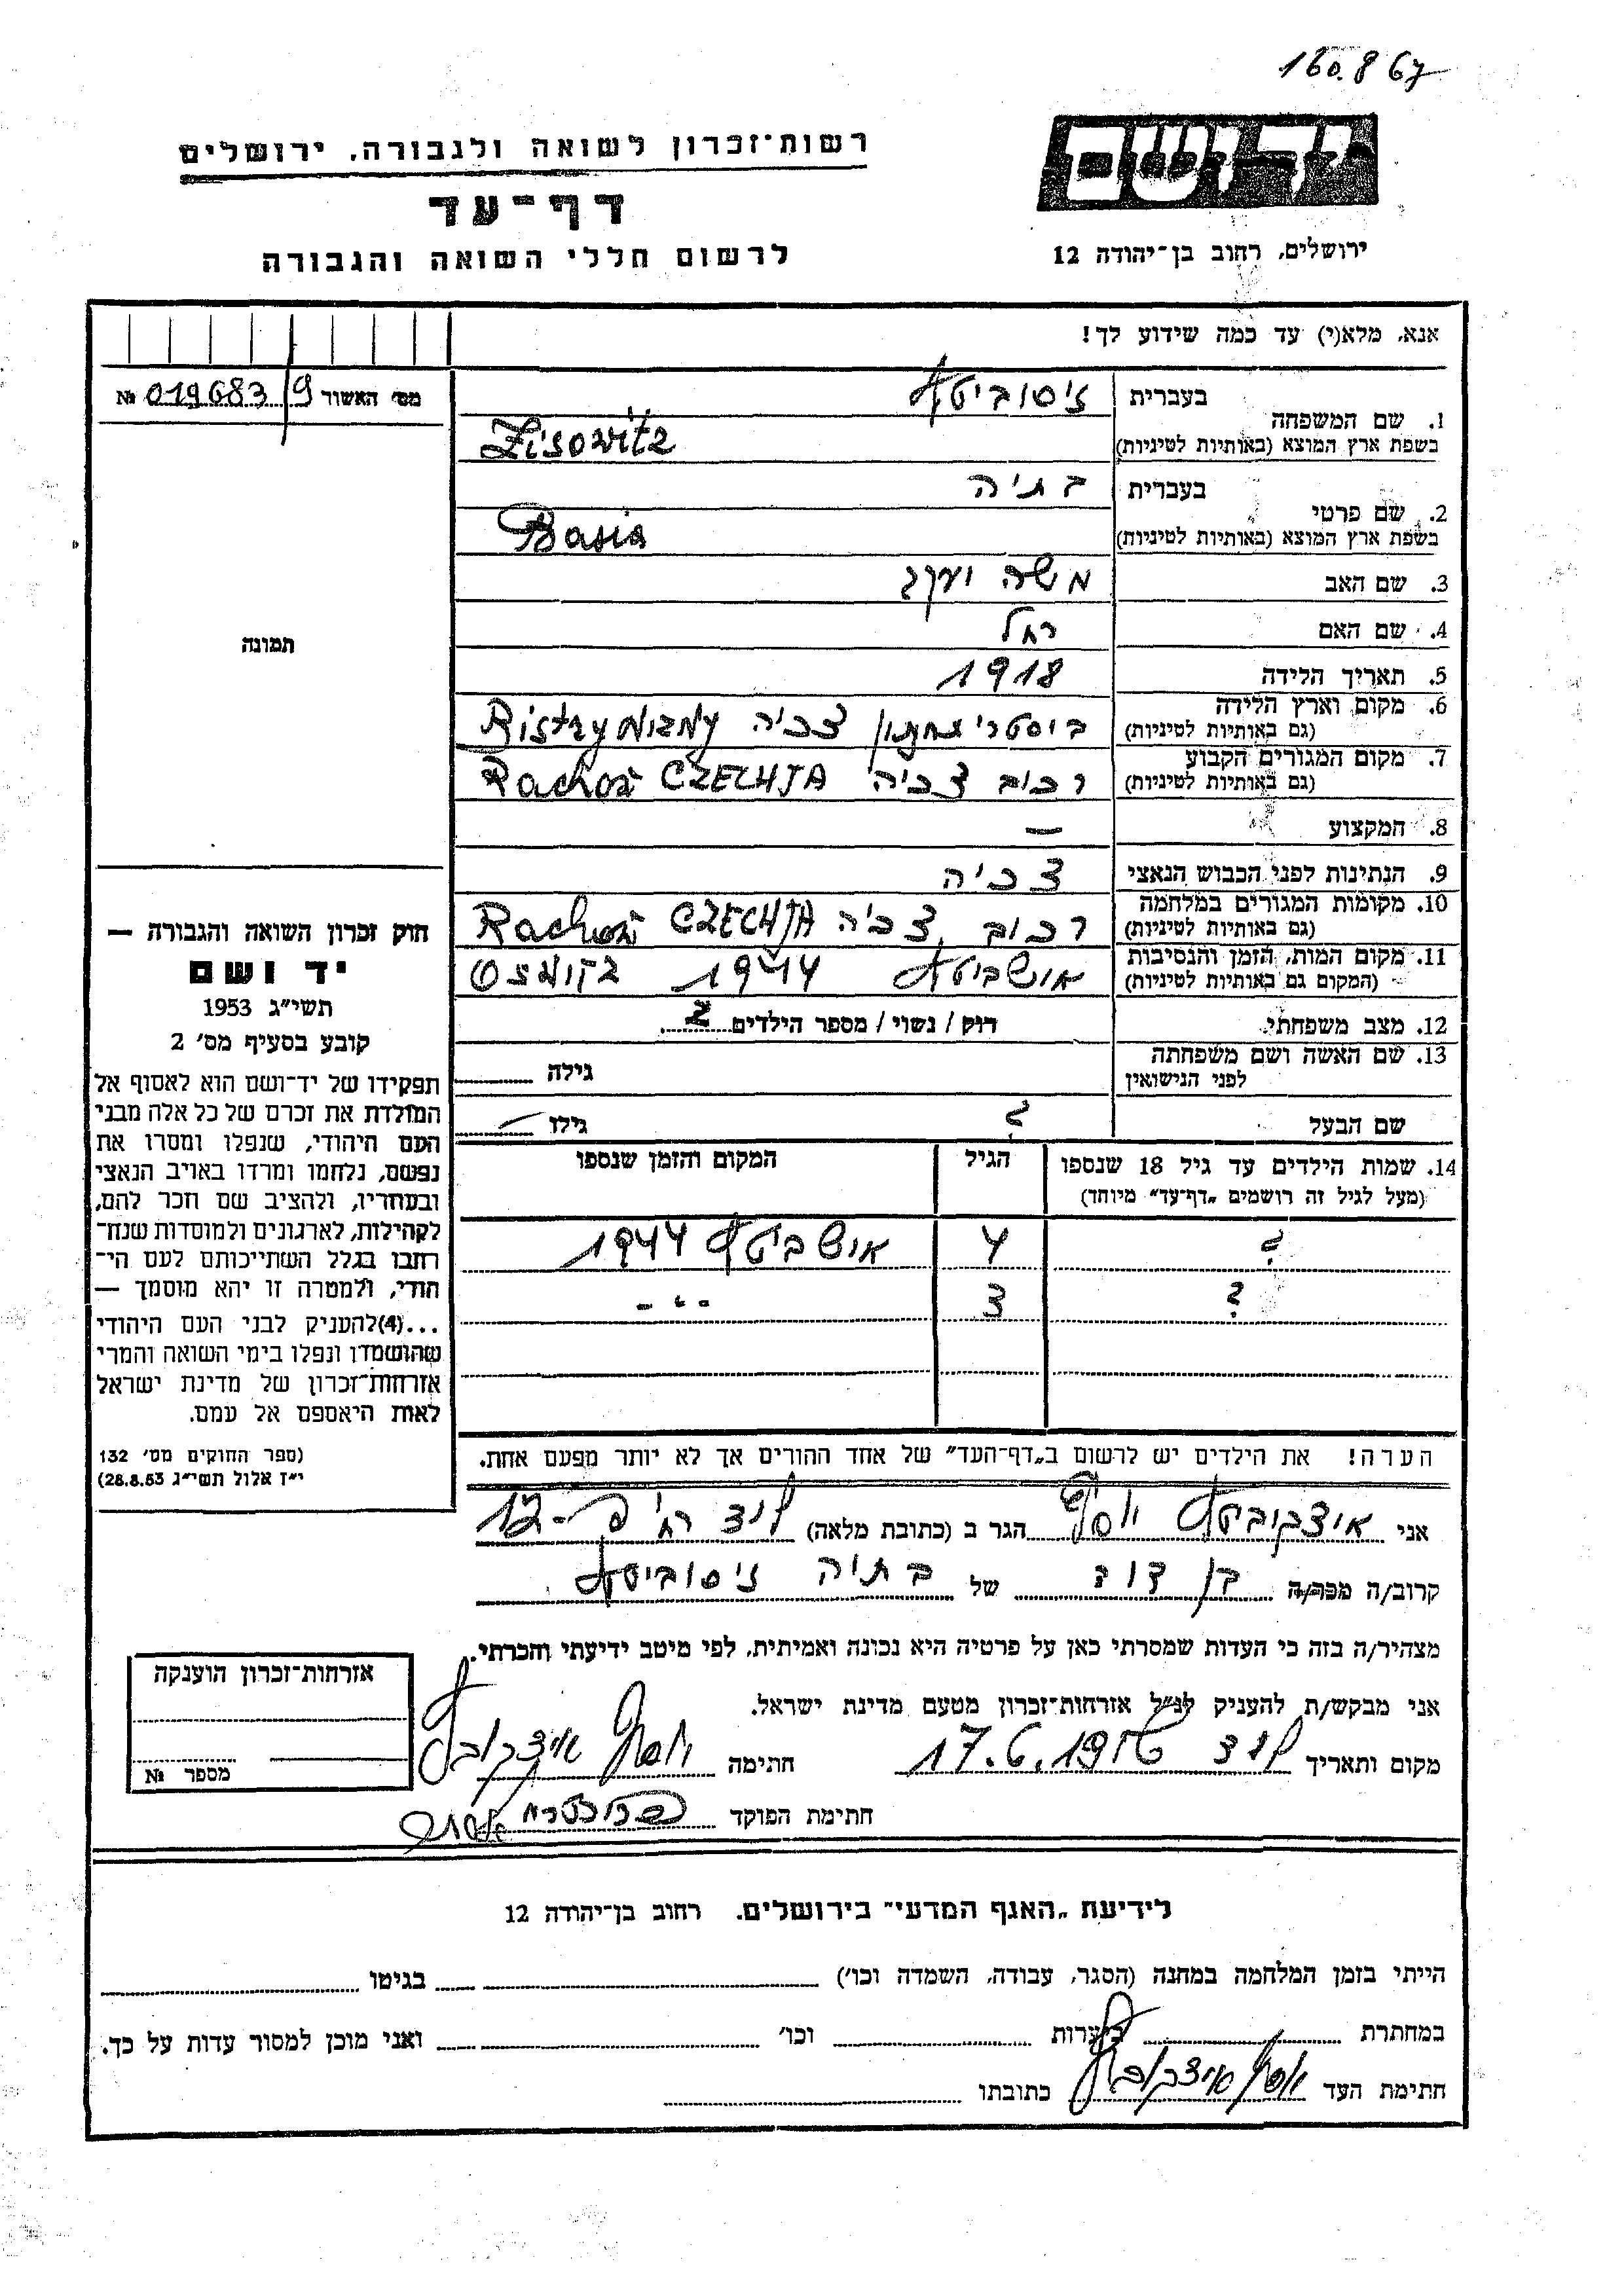 160.8 67
יד ושם
רשות־זכרון לשואה ולגבורה, ירושלים
דף־עד
ירושלים, רחוב בן־יהודה 12
לרשום חללי השואה והגבורה
אנא, מלא(י) עד כמה שידוע לך!
מס׳ האשור 9/019683 №
1. שם המשפחה
בעברית זיסוביטש
בשפת ארץ המוצא (באותיות לטיניות) Zisowitz
2. שם פרטי
בעברית בתיה
בשפת ארץ המוצא (באותיות לטיניות) Basia
3. שם האב משה יעקב
4. שם האם רחל
5. תאריך הלידה 1918
6. מקום וארץ הלידה
(גם באותיות לטיניות) צכיה
7. מקום המגורים הקבוע
(גם באותיות לטיניות) רכוב צכיה CZECHJA
8. המקצוע —
9. הנתינות לפני הכבוש הנאצי צכיה
10. מקומות המגורים במלחמה
(גם באותיות לטיניות) רכוב צכיה CZECHJA
11. מקום המות, הזמן והנסיבות
(המקום גם באותיות לטיניות) אושביטש 1944
12. מצב משפחתי רוק / נשוי / מספר הילדים 2
13. שם האשה ושם משפחתה
לפני הנישואין גילה
שם הבעל ? גילו —
14. שמות הילדים עד גיל 18 שנספו הגיל המקום והזמן שנספו
(מעל לגיל זה רושמים „דף־עד״ מיוחד)
? 4 אושביטש 1944
? 3 - " -
הערה! את הילדים יש לרשום ב„דף־העד״ של אחד ההורים אך לא יותר מפעם אחת.
תמונה
חוק זכרון השואה והגבורה —
יד ושם
תשי״ג 1953
קובע בסעיף מס׳ 2
תפקידו של יד־ושם הוא לאסוף אל
המולדת את זכרם של כל אלה מבני
העם היהודי, שנפלו ומסרו את
נפשם, נלחמו ומרדו באויב הנאצי
ובעוזריו, ולהציב שם וזכר להם,
לקהילות, לארגונים ולמוסדות שנח־
רבו בגלל השתייכותם לעם הי־
הודי, ולמטרה זו יהא מוסמך —
...(4)להעניק לבני העם היהודי
שהושמדו ונפלו בימי השואה והמרי
אזרחות־זכרון של מדינת ישראל
לאות היאספם אל עמם.
(ספר החוקים מס׳ 132
י״ז אלול תשי״ג 28.8.53)
אני איצקוביטש יוסף הגר ב (כתובת מלאה) לוד רח׳
קרוב/ה מכר/ה בן דוד של בתיה זיסוביטש
מצהיר/ה בזה כי העדות שמסרתי כאן על פרטיה היא נכונה ואמיתית, לפי מיטב ידיעתי והכרתי.
אני מבקש/ת להעניק לנ״ל אזרחות־זכרון מטעם מדינת ישראל.
מקום ותאריך לוד חתימה יוסף
חתימת הפוקד
אזרחות־זכרון הוענקה
מספר №
לידיעת „האגף המדעי״ בירושלים, רחוב בן־יהודה 12
הייתי בזמן המלחמה במחנה (הסגר, עבודה, השמדה וכו׳) בגיטו
במחתרת ביערות וכו׳ ואני מוכן למסור עדות על כך.
חתימת העד יוסף כתובתו